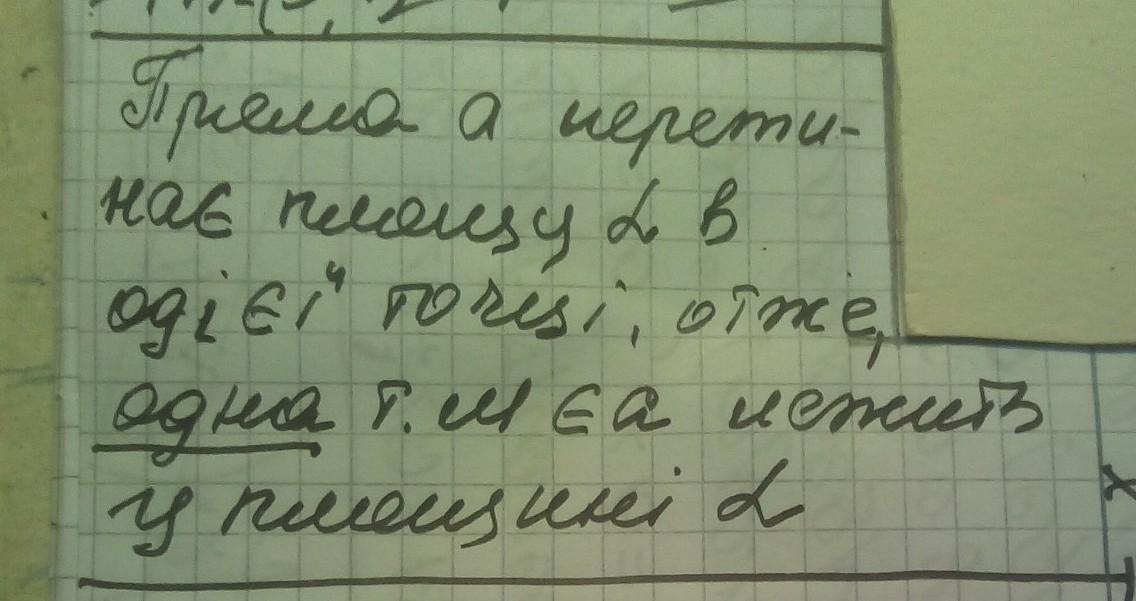 Пряма а перети-
нає площу α в
одієї точці, отже,
одна т. М є а лежить
у площині α